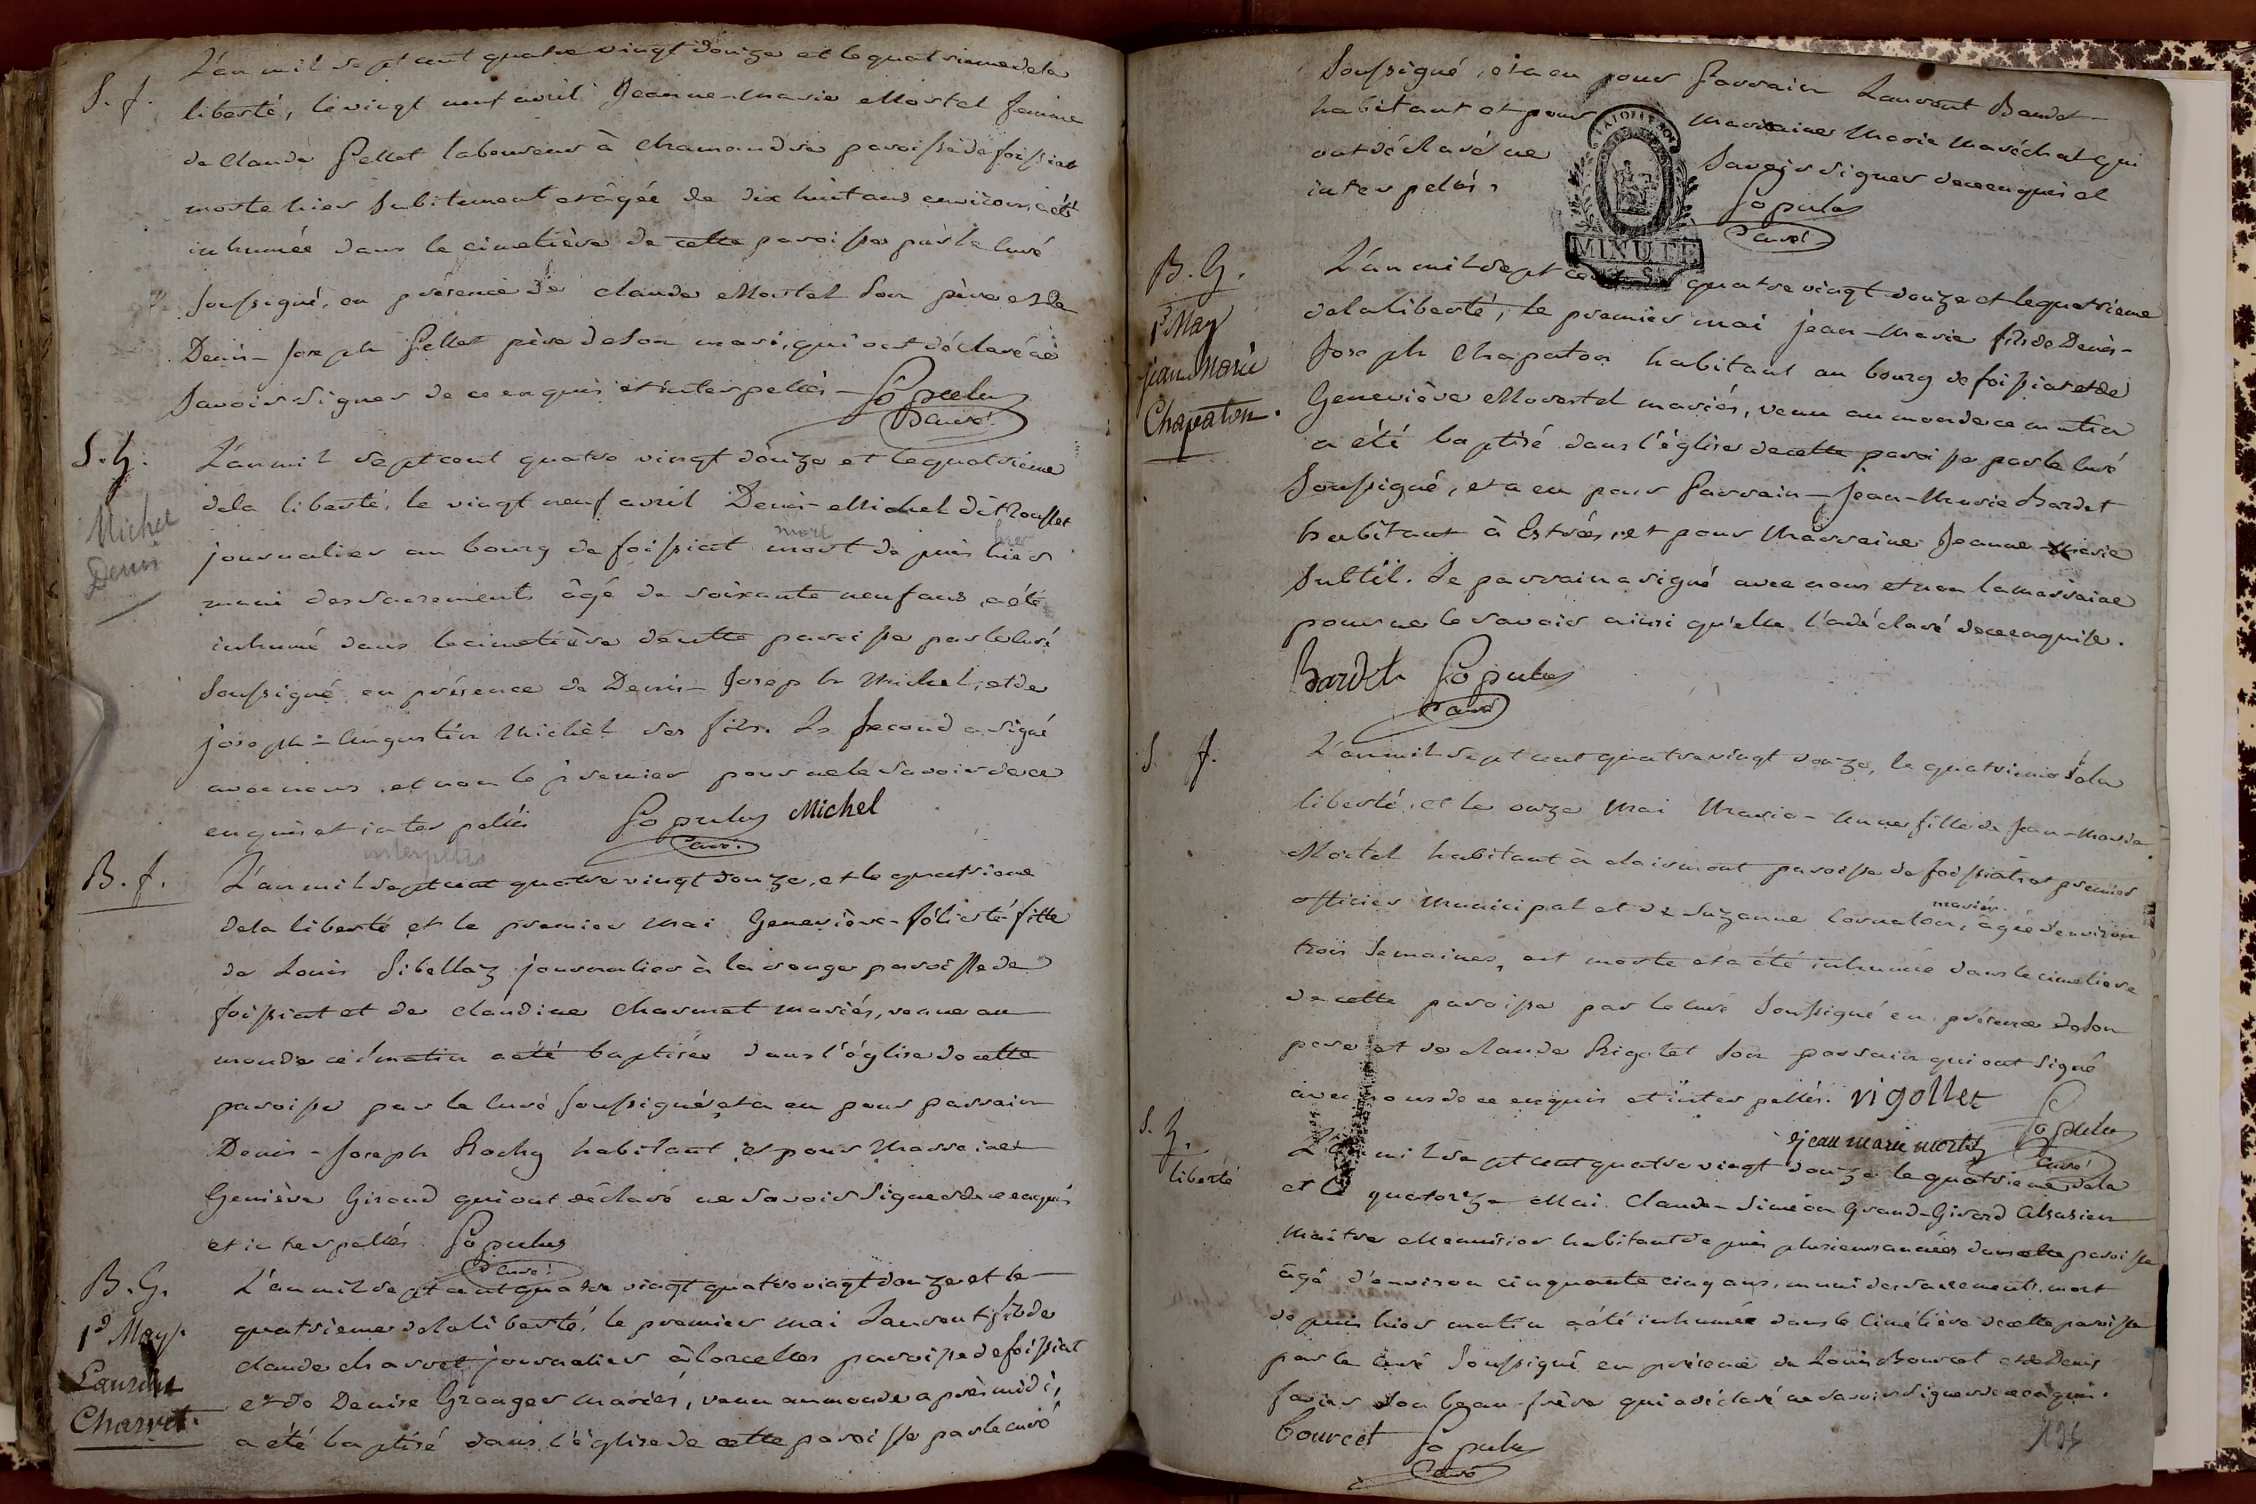 S. f.
L'an mil sept cent quatre vingt douze et le quatrieme de la
liberté, le vingt neuf avril Jeanne-Marie Mortel femme
de Claude Pellet laboureur à Chamandre paroisse de foissiat
morte hier subitement et âgée de dix huit ans environ, a été
inhumée dans le cimetière de cette paroisse par le Curé
soussigné, en présence de Claude Mortel son père et de
Denis-Joseph Pellet père de son mari, qui ont déclaré ne
savoir signer de ce enquis et interpellés — Populus
Curé
S. G.
Michel
Denis
L'an mil sept cent quatre vingt douze et le quatrième
de la liberté, le vingt neuf avril Denis Michel dit Rousset
mort hier
journalier au bourg de foissiat mort depuis hier
muni des sacrements âgé de soixante neuf ans, a été
inhumé dans le cimetière de cette paroisse par le Curé
soussigné en présence de Denis-Joseph Michel, et de
joseph-Augustin Michel ses fils. Le second a signé
avec nous, et non le premier pour ne le savoir de ce
enquis et interpellés Populus Michel
interpellés Curé.
B. f.
L'an mil sept cent quatre vingt douze, et le quatrieme
de la liberté et le premier Mai Geneviève-félicité fille
de Louis Sibellaz journalier à la verger paroisse de
foissiat et de Claudine Charmet mariés, venue au
monde ce matin a été baptisée dans l'église de cette
paroisse par le Curé soussigné, et a eu pour parrain
Denis-Joseph Rochy habitant et pour Marraine
Geniève Giraud qui ont déclaré ne savoir signer de ce enquis
et interpellés Populus
Curé
B. G.
1er May
Laurent
Charvet.
L'an mil sept cent quatre vingt quatre vingt douze et le
quatrieme de la liberté, le premier mai Laurent fils de
Claude Charvet journalier à lorcelles paroisse de foissiat
et de Denise Granger mariés, venu au monde après midi,
a été baptisé dans l'église de cette paroisse par le curé
soussigné, et a eu pour Parrain Laurent Baudet
habitant et pour Marraine Marie Maréchal qui
ont déclaré ne savoir signer de ce enquis et
interpellés. Populus
Curé
MINUTE
B. G.
1er May
jean Marie
Chapaton.
L'an mil sept cent quatre vingt douze et le quatrieme
de la liberté, le premier mai jean-Marie fils de Denis-
Joseph Chapaton habitant au bourg de foissiat et de
Geneviève Mortel mariés, venu au monde ce matin
a été baptisé dans l'église de cette paroisse par le Curé
soussigné, et a eu pour Parrain Jean-Marie Bardet
habitant à Estrées, et pour Marraine Jeanne-Marie
Subtil. Le parrain a signé avec nous et non la marraine
pour ne le savoir ainsi qu'elle l'a déclaré de ce enquise.
Bardet Populus
Curé
S. f.
L'an mil sept cent quatre vingt douze, le quatrieme de la
liberté, et le onze Mai Marie-Anne fille de Jean-Marie
Mortel habitant à clairmont paroisse de foissiat et premier
mariés.
officier Municipal et de Suzanne Cornaton, âgée d'environ
trois semaines, est morte et a été inhumée dans le cimetiere
de cette paroisse par le Curé soussigné en présence de son
pere et de Claude Rigolet son parrain qui ont signé
avec nous de ce enquis et interpellés. vigollet
jean marie mortel Populus
Curé
S. G.
liberté
L'an mil sept cent quatre vingt douze le quatrieme de la
et le quatorze Mai Claude-Siméon Grand-Girard Alsasien
Maitre Menuisier habitant depuis plusieurs années dans cette paroisse
âgé d'environ cinquante cinq ans, muni des sacrements, mort
depuis hier matin a été inhumée dans le Cimétière de cette paroisse
par le Curé soussigné en présence de Louis Bourcet et de Denis
favier son beau-frère qui a déclaré ne savoir signer de ce enquis.
Bourcet Populus
Curé